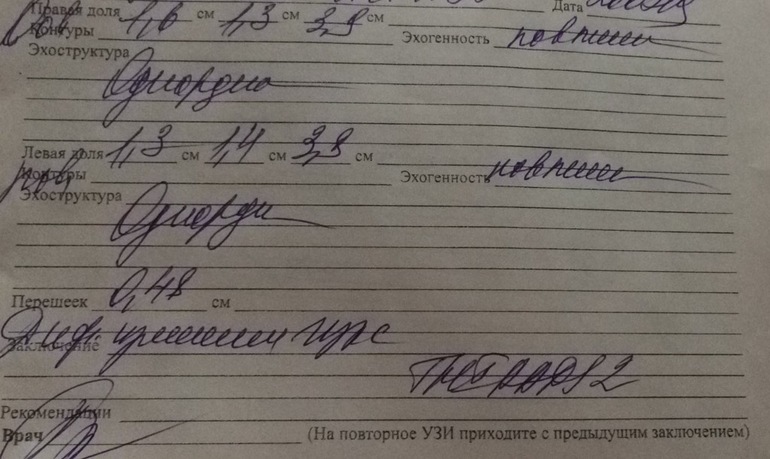 Правая доля 1,6 см 1,3 см 3,9 см Дата
Контуры Ров Эхогенность повыш
Эхоструктура
Однородна
Левая доля 1,3 см 1,4 см 3,9 см
Контуры Ров Эхогенность повыш
Эхоструктура
Однородн
Перешеек 0,48 см
Диф. измен
Заключение
Рекомендации
Врач (На повторное УЗИ приходите с предыдущим заключением)